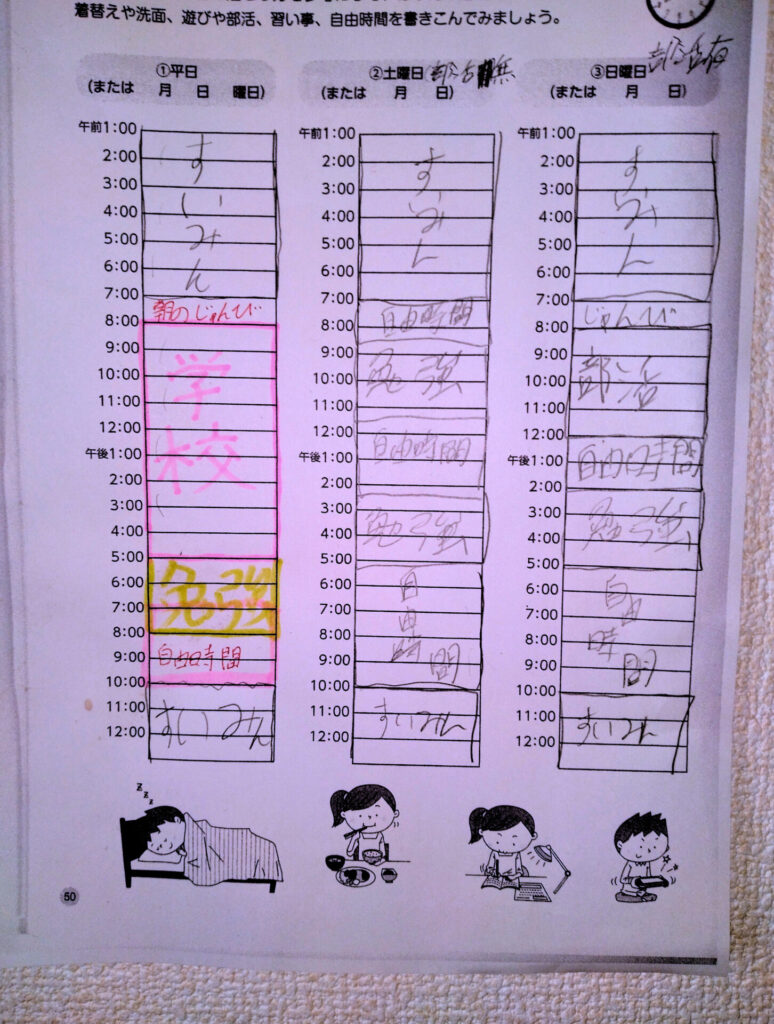 着替えや洗面、遊びや部活、習い事、自由時間を書きこんでみましょう。
①平日
(または　月　日　曜日)
午前1:00
2:00
3:00
4:00
5:00
6:00
7:00
8:00
9:00
10:00
11:00
12:00
午後1:00
2:00
3:00
4:00
5:00
6:00
7:00
8:00
9:00
10:00
11:00
12:00
すいみん
朝のじゅんび
学校
勉強
自由時間
すいみん
②土曜日 部活無
(または　月　日)
午前1:00
2:00
3:00
4:00
5:00
6:00
7:00
8:00
9:00
10:00
11:00
12:00
午後1:00
2:00
3:00
4:00
5:00
6:00
7:00
8:00
9:00
10:00
11:00
12:00
すいみん
自由時間
勉強
自由時間
勉強
自由時間
すいみん
③日曜日 部活有
(または　月　日)
午前1:00
2:00
3:00
4:00
5:00
6:00
7:00
8:00
9:00
10:00
11:00
12:00
午後1:00
2:00
3:00
4:00
5:00
6:00
7:00
8:00
9:00
10:00
11:00
12:00
すいみん
じゅんび
部活
自由時間
勉強
自由時間
すいみん
z z z
50